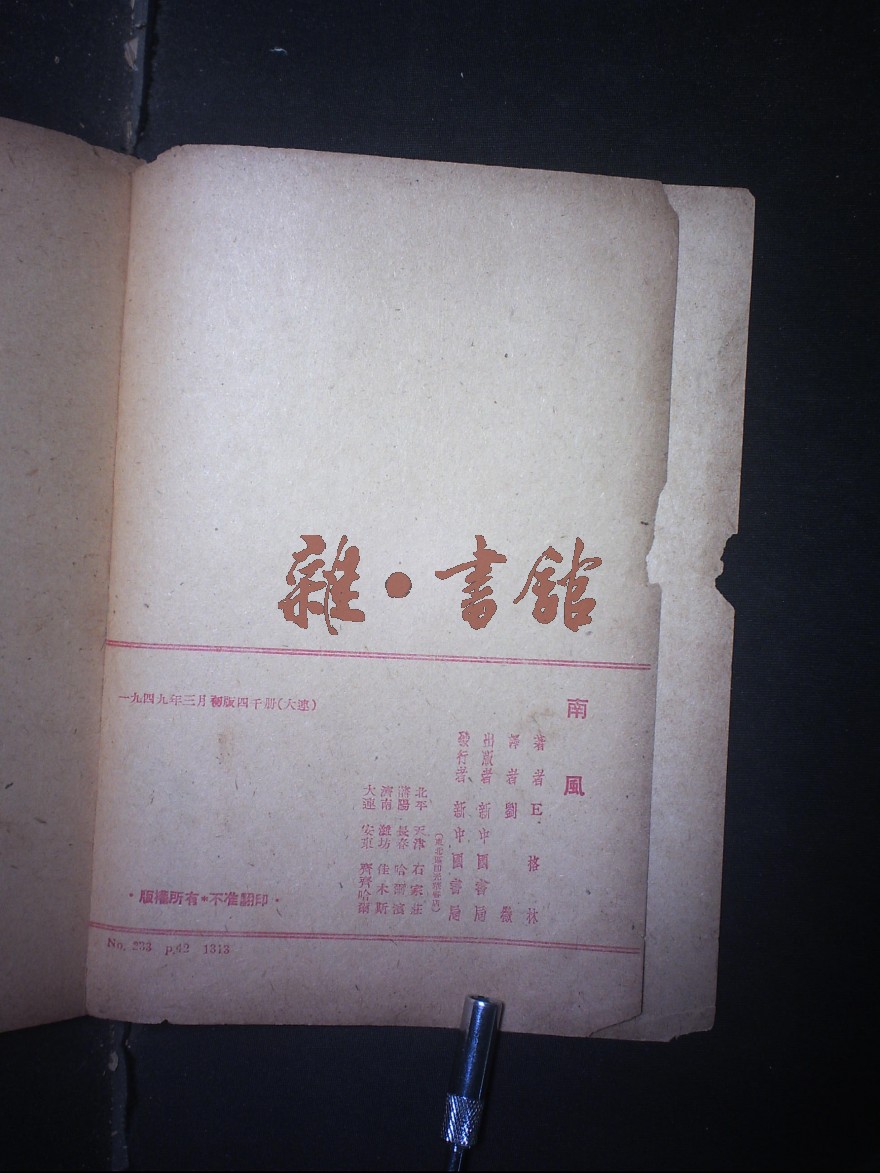 雜·書館
南風
著者 E. 格林
譯者 劉
出版者 新中國書局
發行者 新中國書局
北平 天津 石家莊
瀋陽 長春 哈爾濱
濟南 濰坊 佳木斯
大連 安東 齊齊哈爾
一九四九年三月初版四千册(大連)
·版權所有*不准翻印·
No. 233 p.42 1313